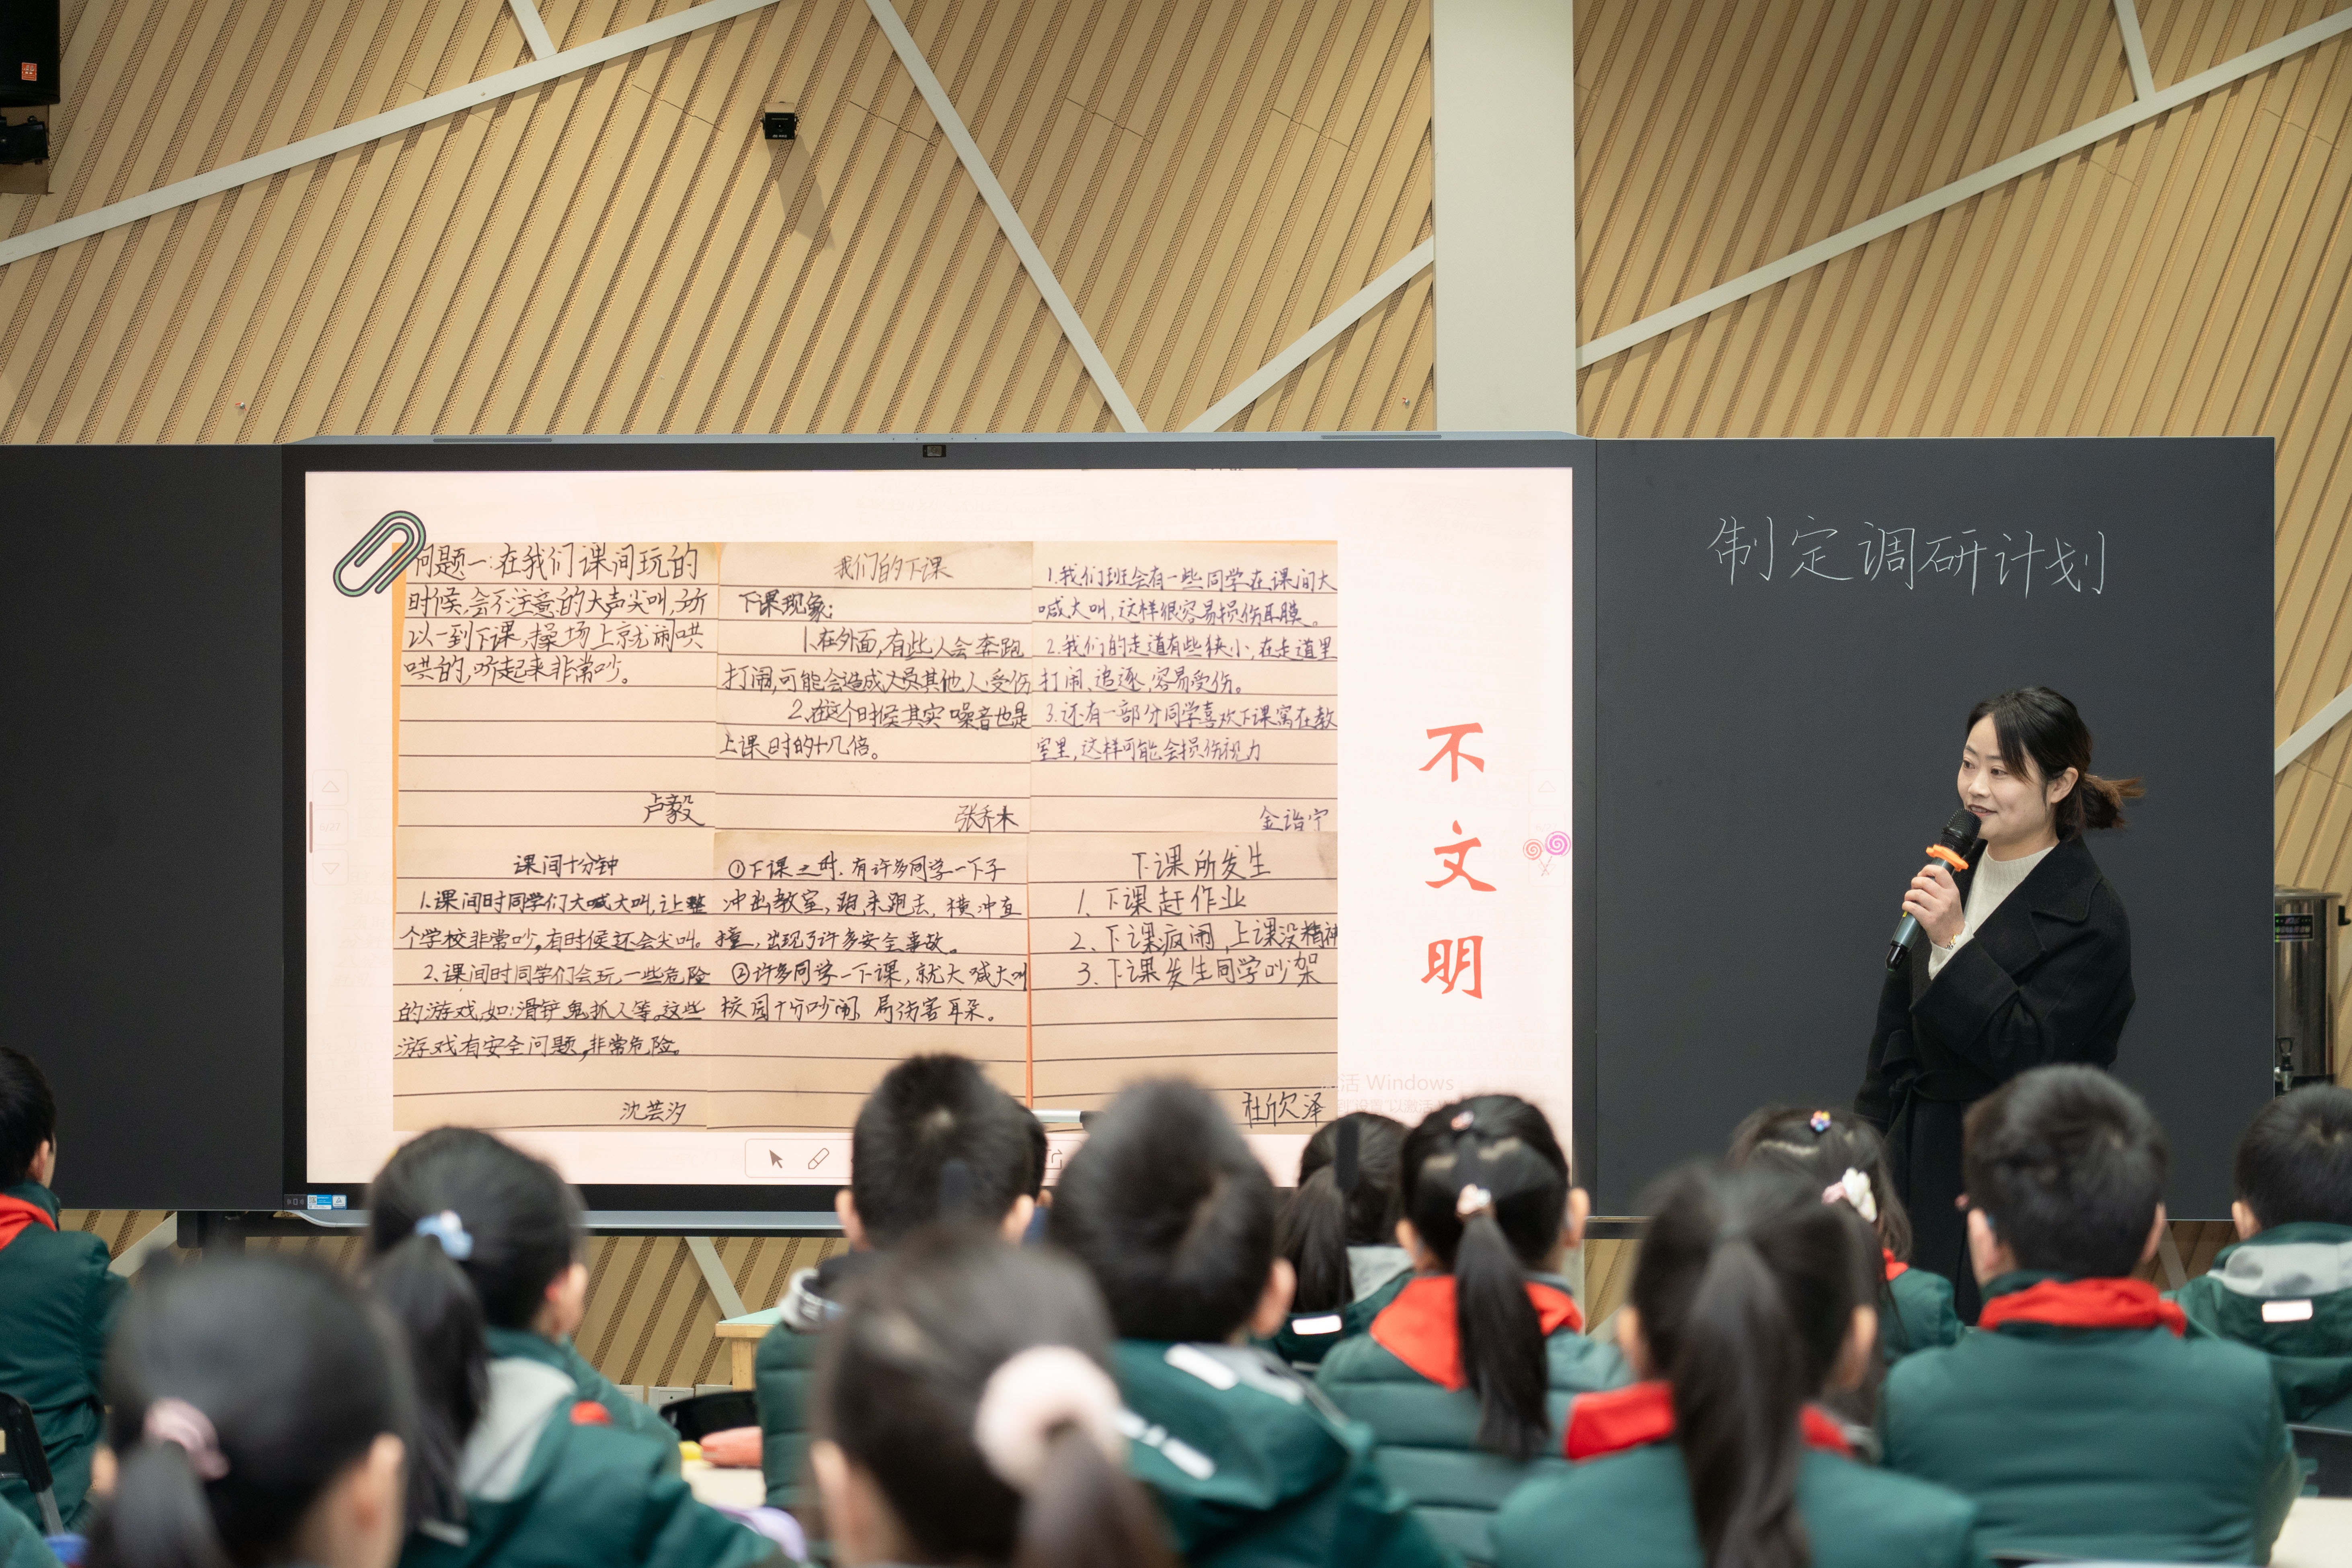 问题一:在我们课间玩的
时候,会不注意的大声尖叫,所
以一到下课,操场上就闹哄
哄的,听起来非常吵。
卢毅
我们的下课
下课现象:
1.在外面,有些人会奔跑
打闹,可能会造成人员其他人受伤
2.在这个时候其实噪音也是
上课时的十几倍。
张乔木
1.我们班会有一些同学在课间大
喊大叫,这样很容易损伤耳膜。
2.我们的走道有些狭小,在走道里
打闹、追逐,容易受伤。
3.还有一部分同学喜欢下课窝在教
室里,这样可能会损伤视力
金诣宁
课间十分钟
1.课间时同学们大喊大叫,让整
个学校非常吵,有时候还会尖叫。
2.课间时同学们会玩一些危险
的游戏,如:滑铲鬼抓人等,这些
游戏有安全问题,非常危险。
沈芸汐
①下课之时,有许多同学一下子
冲出教室,跑来跑去,横冲直
撞,出现了许多安全事故。
②许多同学一下课,就大喊大叫
校园十分吵闹,易伤害耳朵。
下课所发生
1、下课赶作业
2、下课疯闹,上课没精神
3、下课发生同学吵架
杜欣泽
不
文
明
活 Windows
制定调研计划